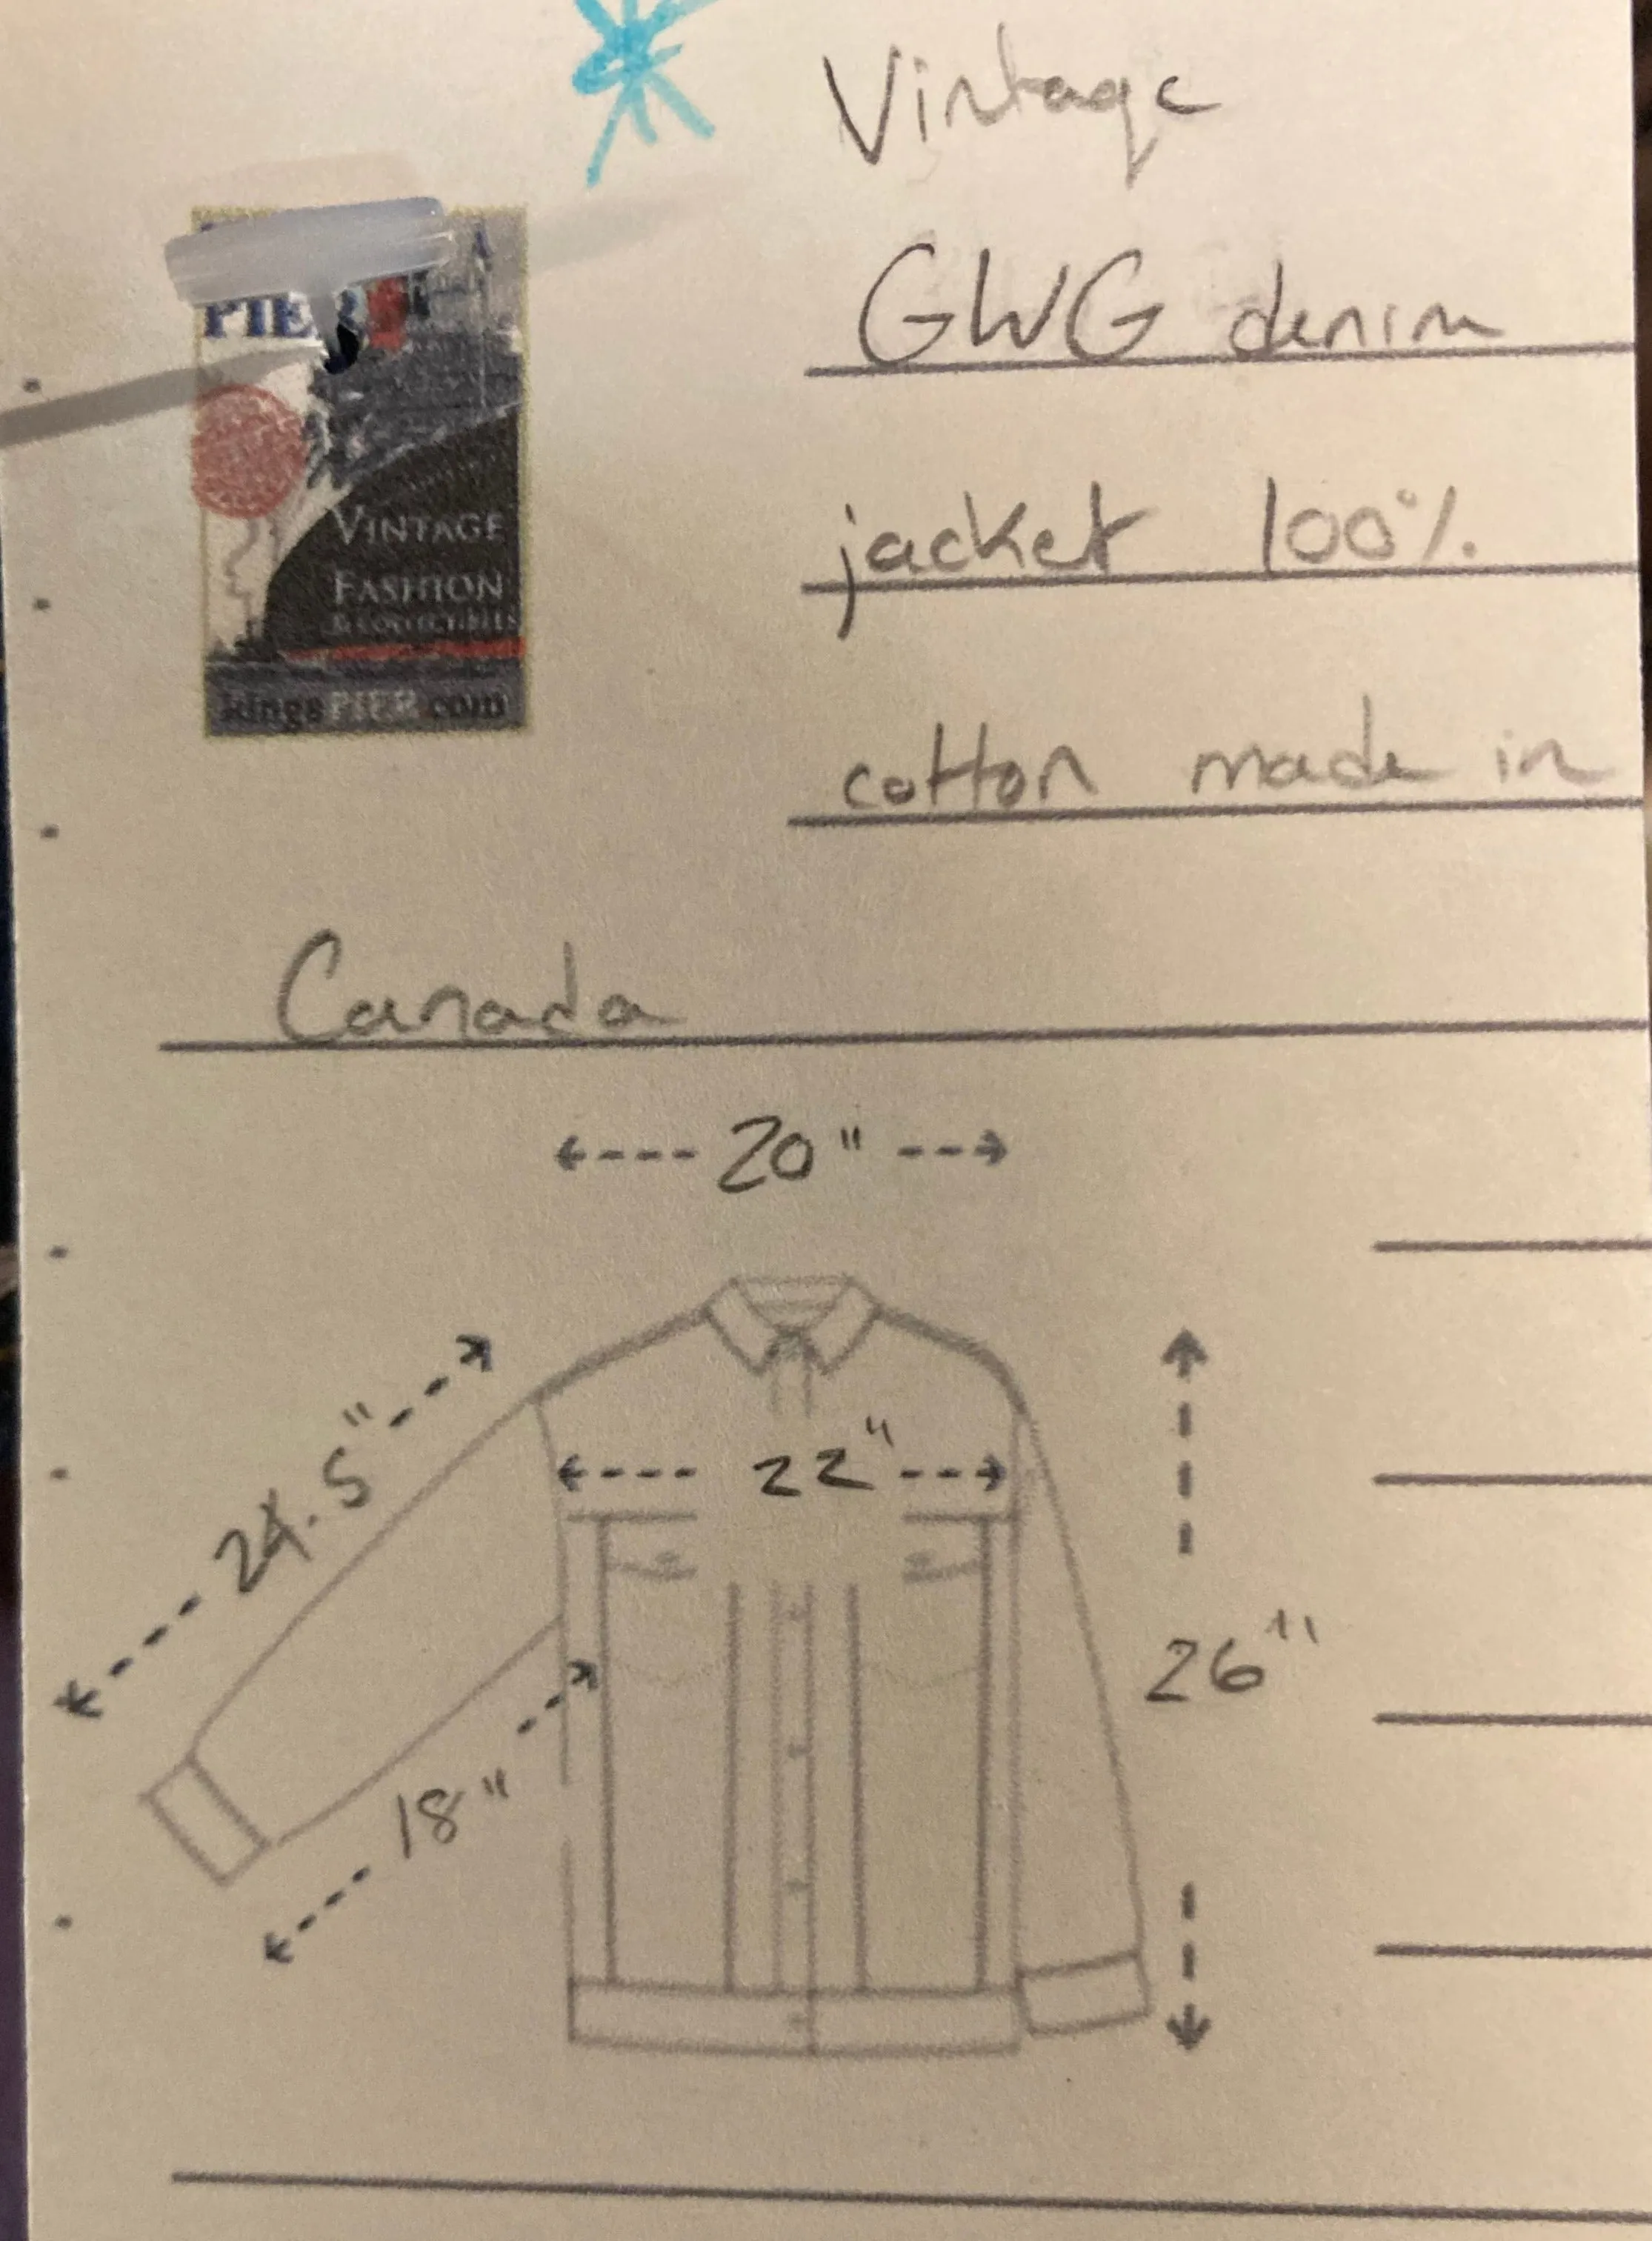 Vintage
GWG denim
jacket 100%
cotton made in
Canada
PIER
VINTAGE
FASHION
& COLLECTIBLES
kingsPIER.com
20"
22"
24.5"
18"
26"